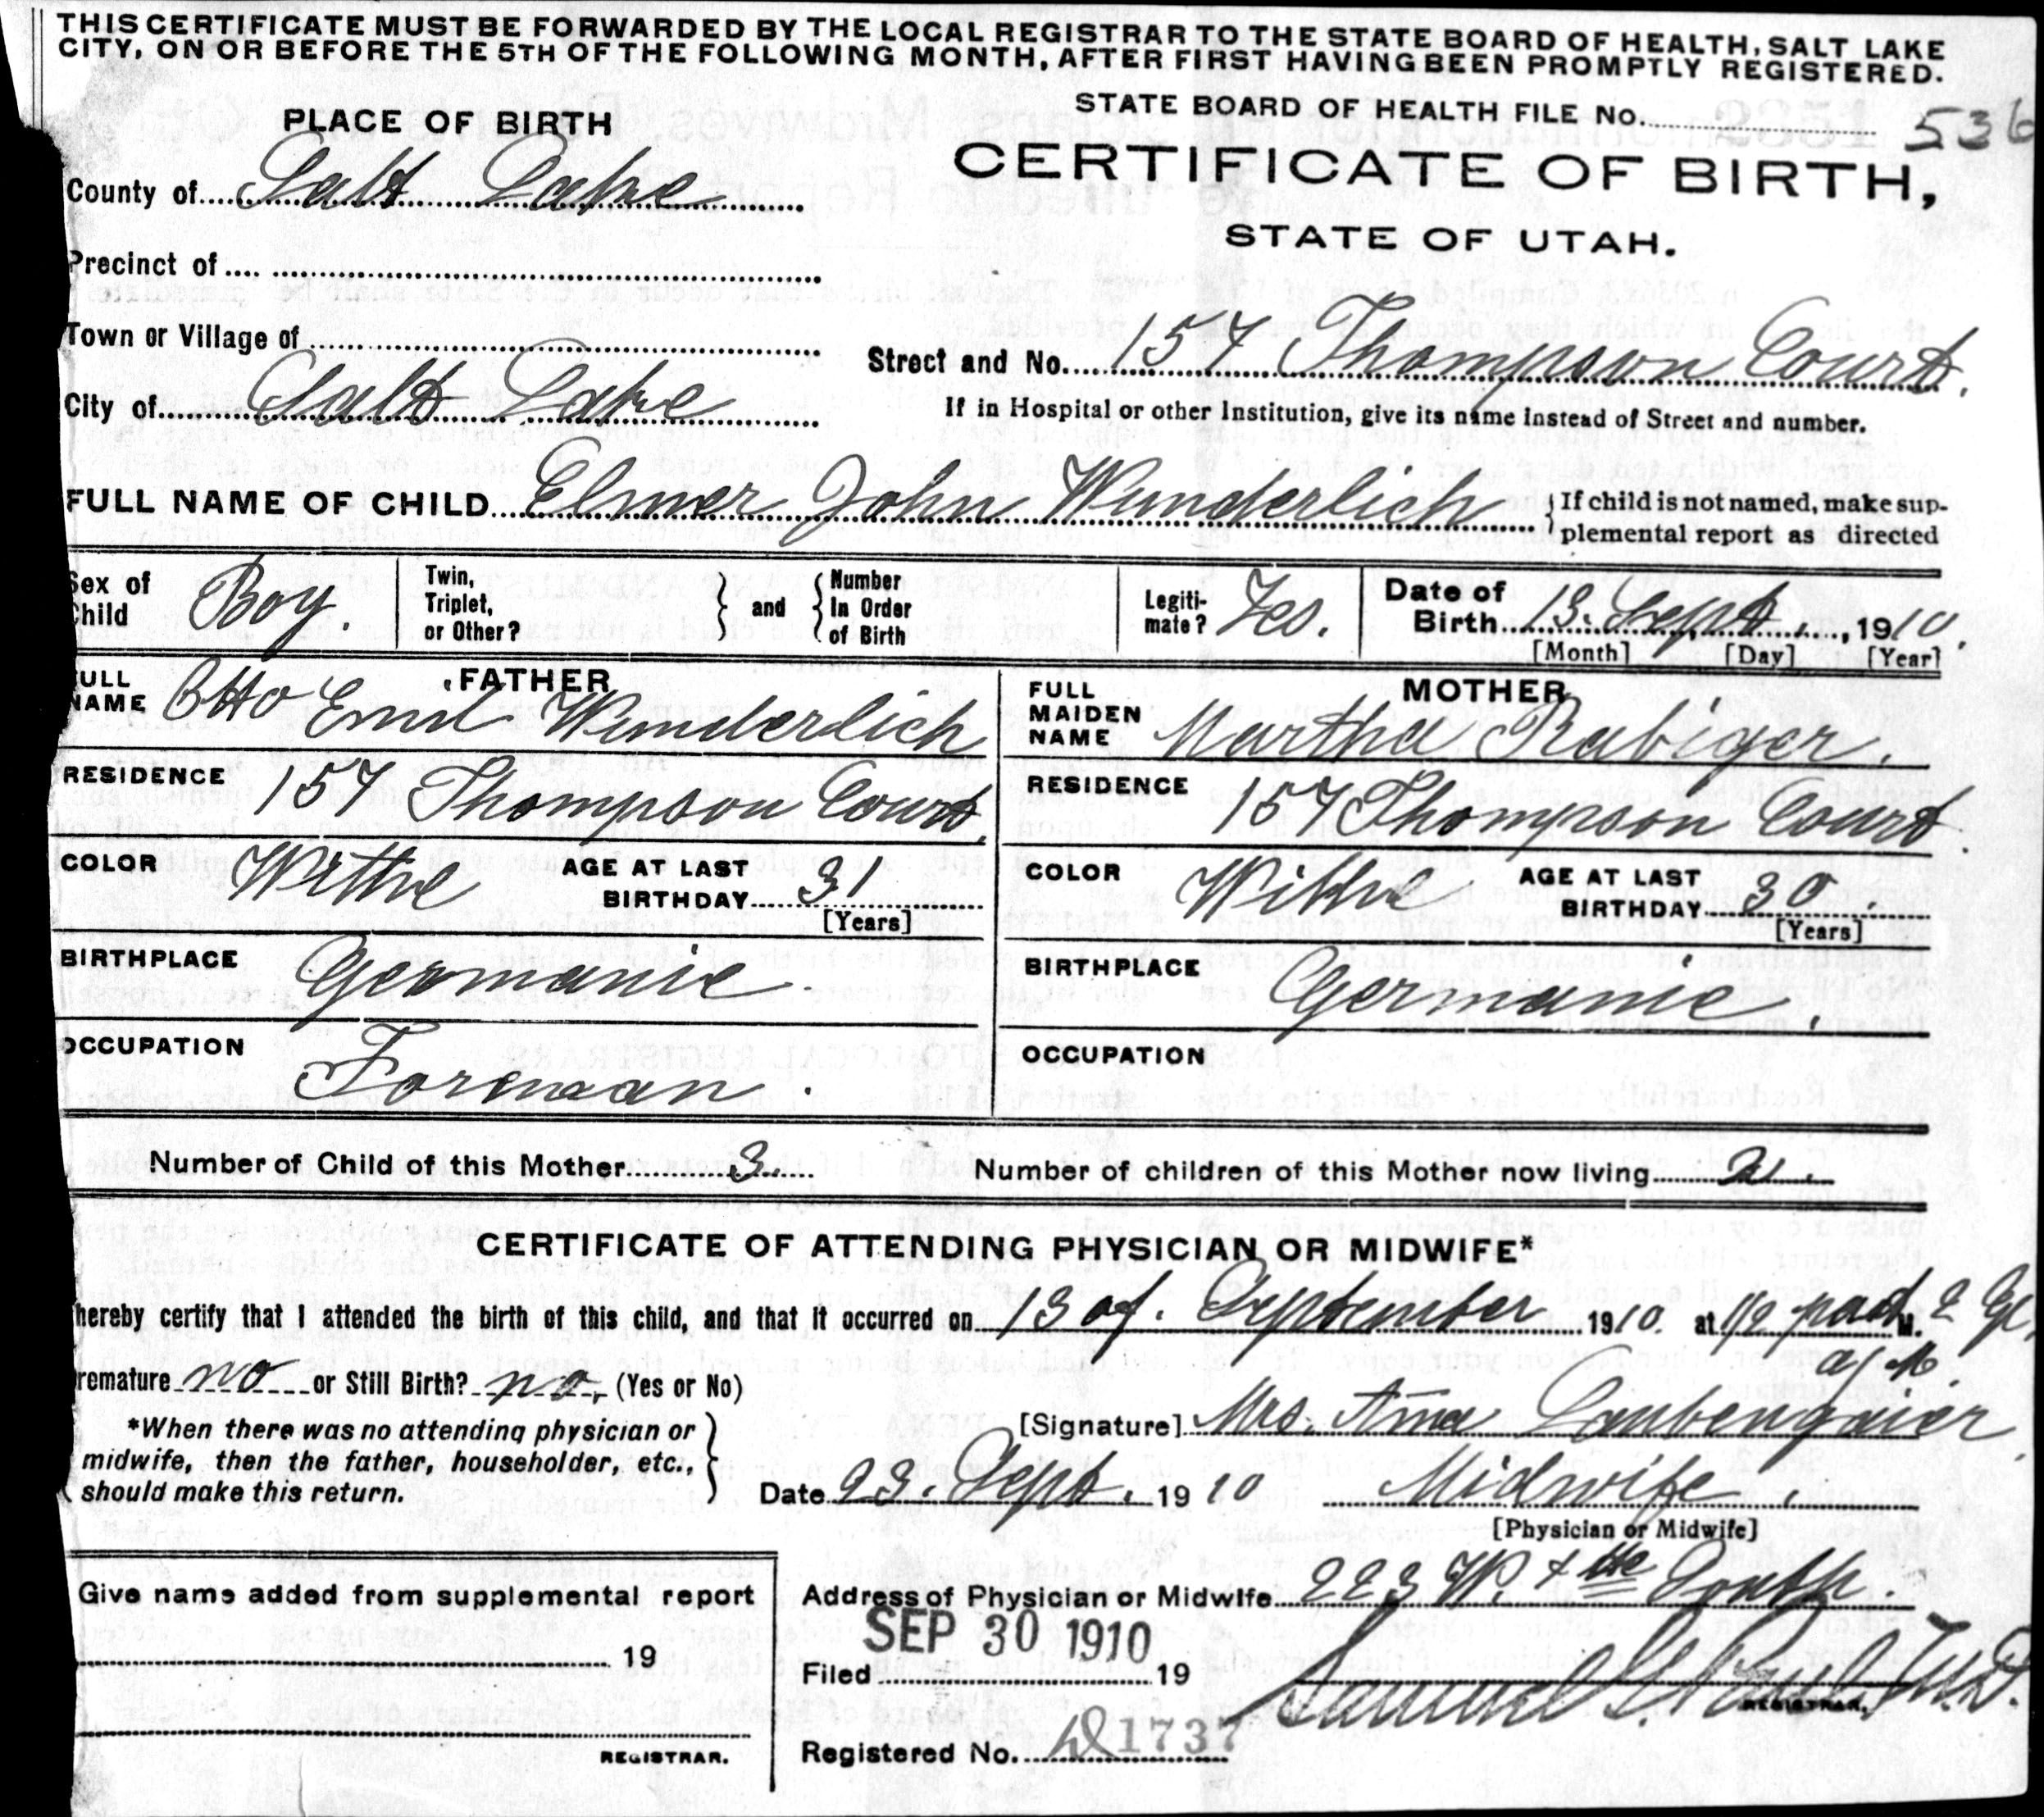 THIS CERTIFICATE MUST BE FORWARDED BY THE LOCAL REGISTRAR TO THE STATE BOARD OF HEALTH, SALT LAKE
CITY, ON OR BEFORE THE 5TH OF THE FOLLOWING MONTH, AFTER FIRST HAVING BEEN PROMPTLY REGISTERED.
STATE BOARD OF HEALTH FILE No. 536
PLACE OF BIRTH
CERTIFICATE OF BIRTH,
STATE OF UTAH.
County of Salt Lake
Precinct of
Town or Village of
Street and No. 157 Thompson Court.
City of Salt Lake
If in Hospital or other Institution, give its name instead of Street and number.
FULL NAME OF CHILD Elmer John Wunderlich { If child is not named, make sup-
plemental report as directed
Sex of Child Boy.
Twin, Triplet, or Other? } and { Number In Order of Birth
Legiti-mate? Yes.
Date of Birth 13. Sept., 1910.
[Month] [Day] [Year]
FATHER
FULL NAME Otto Emil Wunderlich
RESIDENCE 157 Thompson Court.
COLOR Withe AGE AT LAST BIRTHDAY 31
[Years]
BIRTHPLACE Germanie.
OCCUPATION Formaan.
MOTHER
FULL MAIDEN NAME Martha Rabiger.
RESIDENCE 157 Thompson Court.
COLOR Withe AGE AT LAST BIRTHDAY 30.
[Years]
BIRTHPLACE Germanie.
OCCUPATION
Number of Child of this Mother 3 Number of children of this Mother now living
CERTIFICATE OF ATTENDING PHYSICIAN OR MIDWIFE*
hereby certify that I attended the birth of this child, and that it occurred on 13 of. September 1910. at 1/2 past M. 2
remature no or Still Birth? no, (Yes or No)
*When there was no attending physician or
midwife, then the father, householder, etc.,
should make this return.
[Signature] Mrs. Anna Laubengaier
Date 23. Sept. 1910 Midwife.
[Physician or Midwife]
Address of Physician or Midwife 223 W. 4 the South.
SEP 30 1910
Filed 19
Samuel G. Paul M.D.
REGISTRAR.
Registered No. 1737
Give name added from supplemental report
19
REGISTRAR.